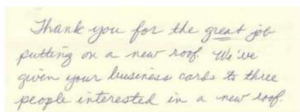 Thank you for the great job
putting on a new roof. We've
given your business cards to three
people interested in a new roof